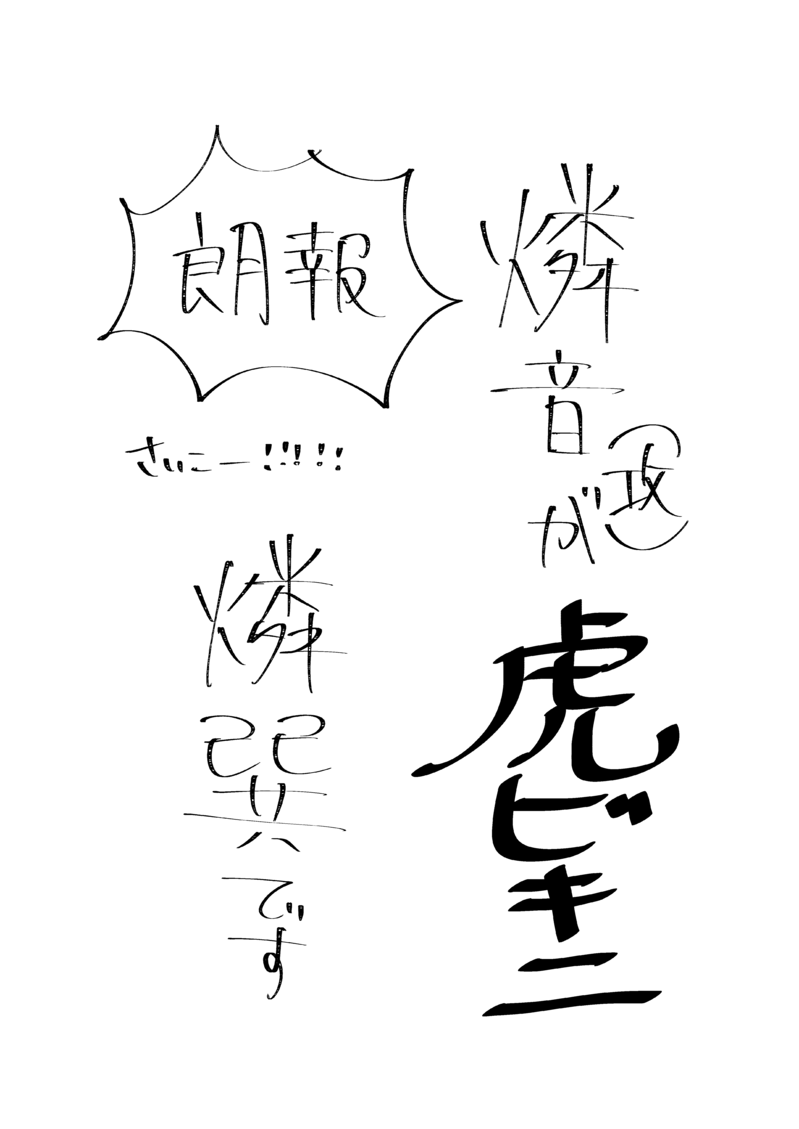 燐音(攻)が
虎ビキニ
朗報
さいこー!!!!!
燐巽です